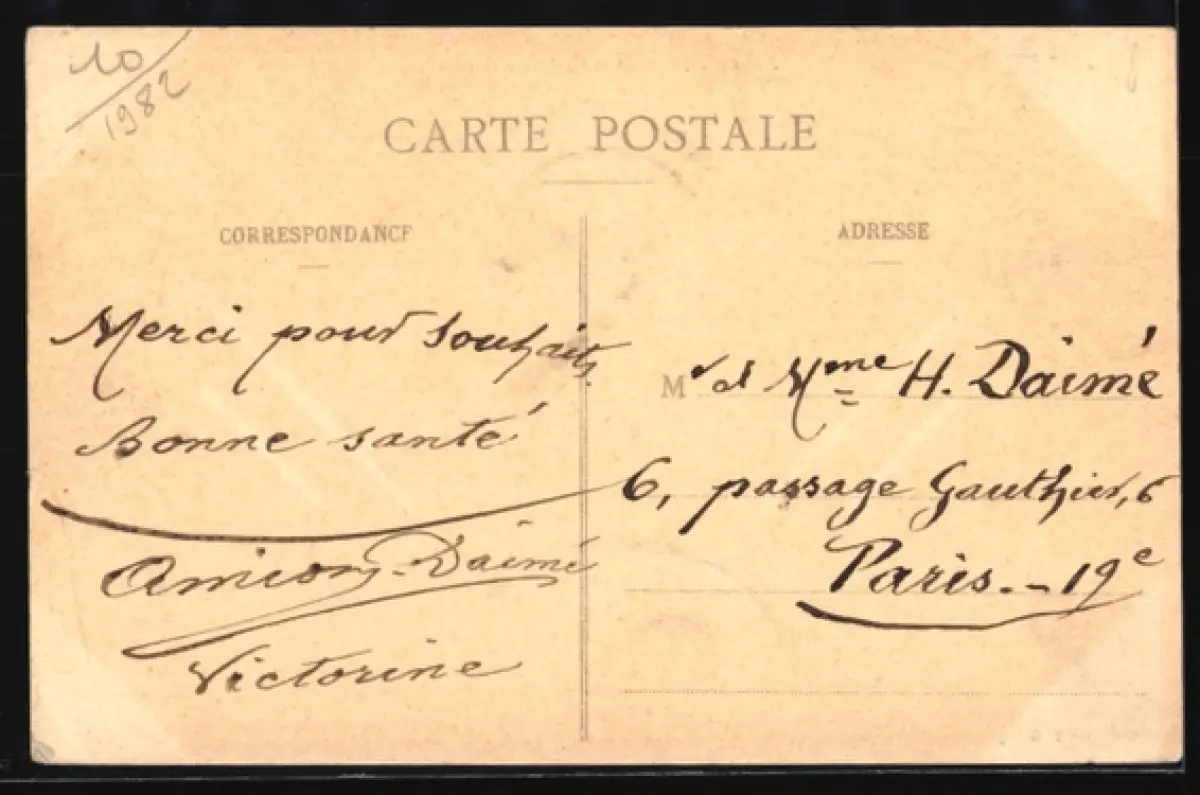 10
1982
CARTE POSTALE
CORRESPONDANCE
Merci pour souhaits.
Bonne santé
Daimé
Victorine
ADRESSE
Mr et Mme H. Daimé
6, passage Gauthier, 6
Paris. - 19e